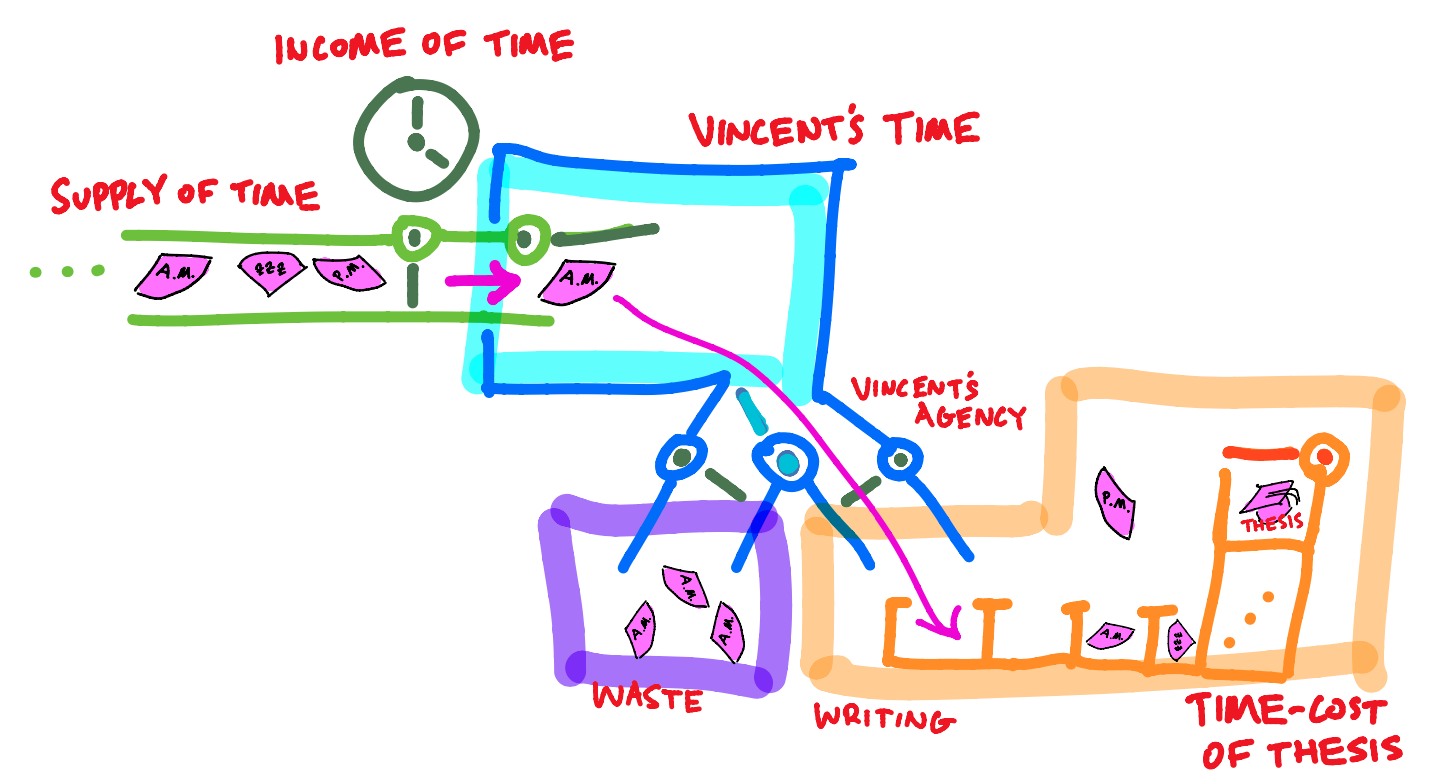 INCOME OF TIME
VINCENT'S TIME
SUPPLY OF TIME
A.M.
zzz
P.M.
A.M.
VINCENT'S
AGENCY
P.M.
THESIS
A.M.
A.M.
A.M.
A.M.
zzz
WASTE
WRITING
TIME-COST
OF THESIS